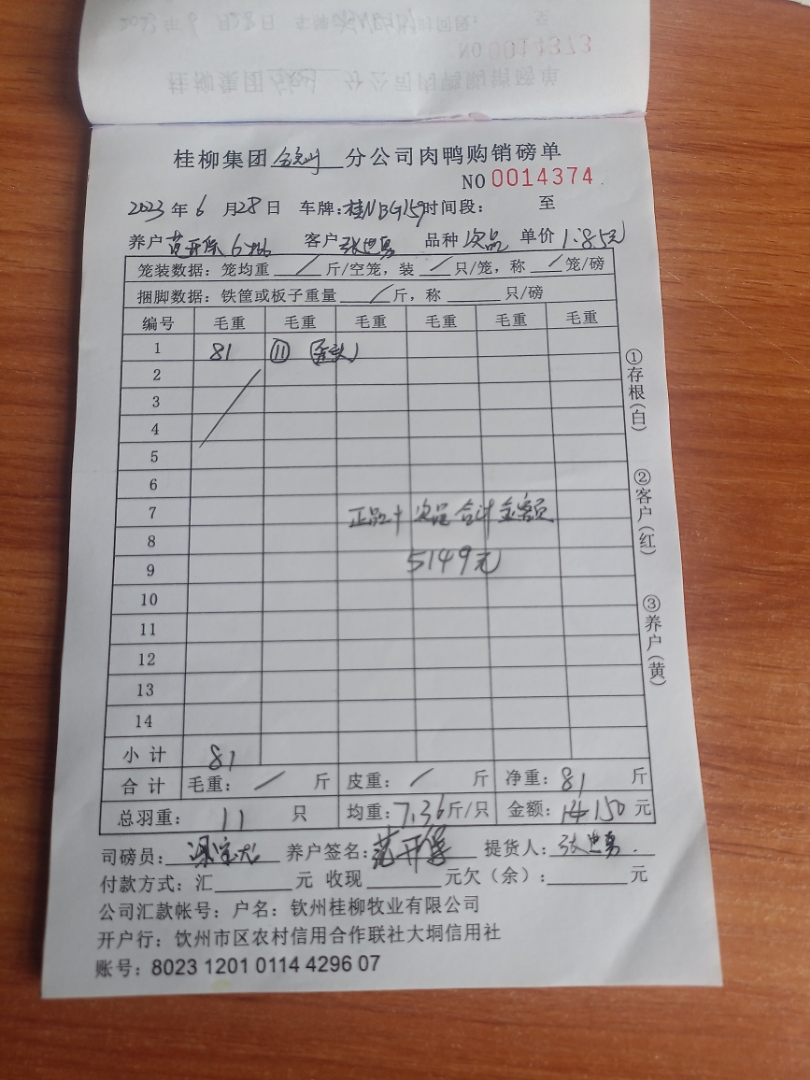 桂柳集团 分公司肉鸭购销磅单
NO 0014374
2023 年 6 月 28 日 车牌: 桂NBG159 时间段: 至
养户 范开保 客户 张世勇 品种 次品 单价 1.85元
笼装数据: 笼均重 / 斤/空笼, 装 / 只/笼, 称 / 笼/磅
捆脚数据: 铁筐或板子重量 / 斤, 称 只/磅
编号 毛重 毛重 毛重 毛重 毛重 毛重
1 81 ⑪
2
3
4
5
6
7 正品+次品合计金额
8
9 5149元
10
11
12
13
14
小计 81
合计 毛重: / 斤 皮重: / 斤 净重: 81 斤
总羽重: 11 只 均重: 7.36 斤/只 金额: 150 元
司磅员: 养户签名: 范开保 提货人: 张世勇
付款方式: 汇 元 收现 元欠(余): 元
公司汇款帐号: 户名: 钦州桂柳牧业有限公司
开户行: 饮州市区农村信用合作联社大垌信用社
账号: 8023 1201 0114 4296 07
①存根(白)
②客户(红)
③养户(黄)